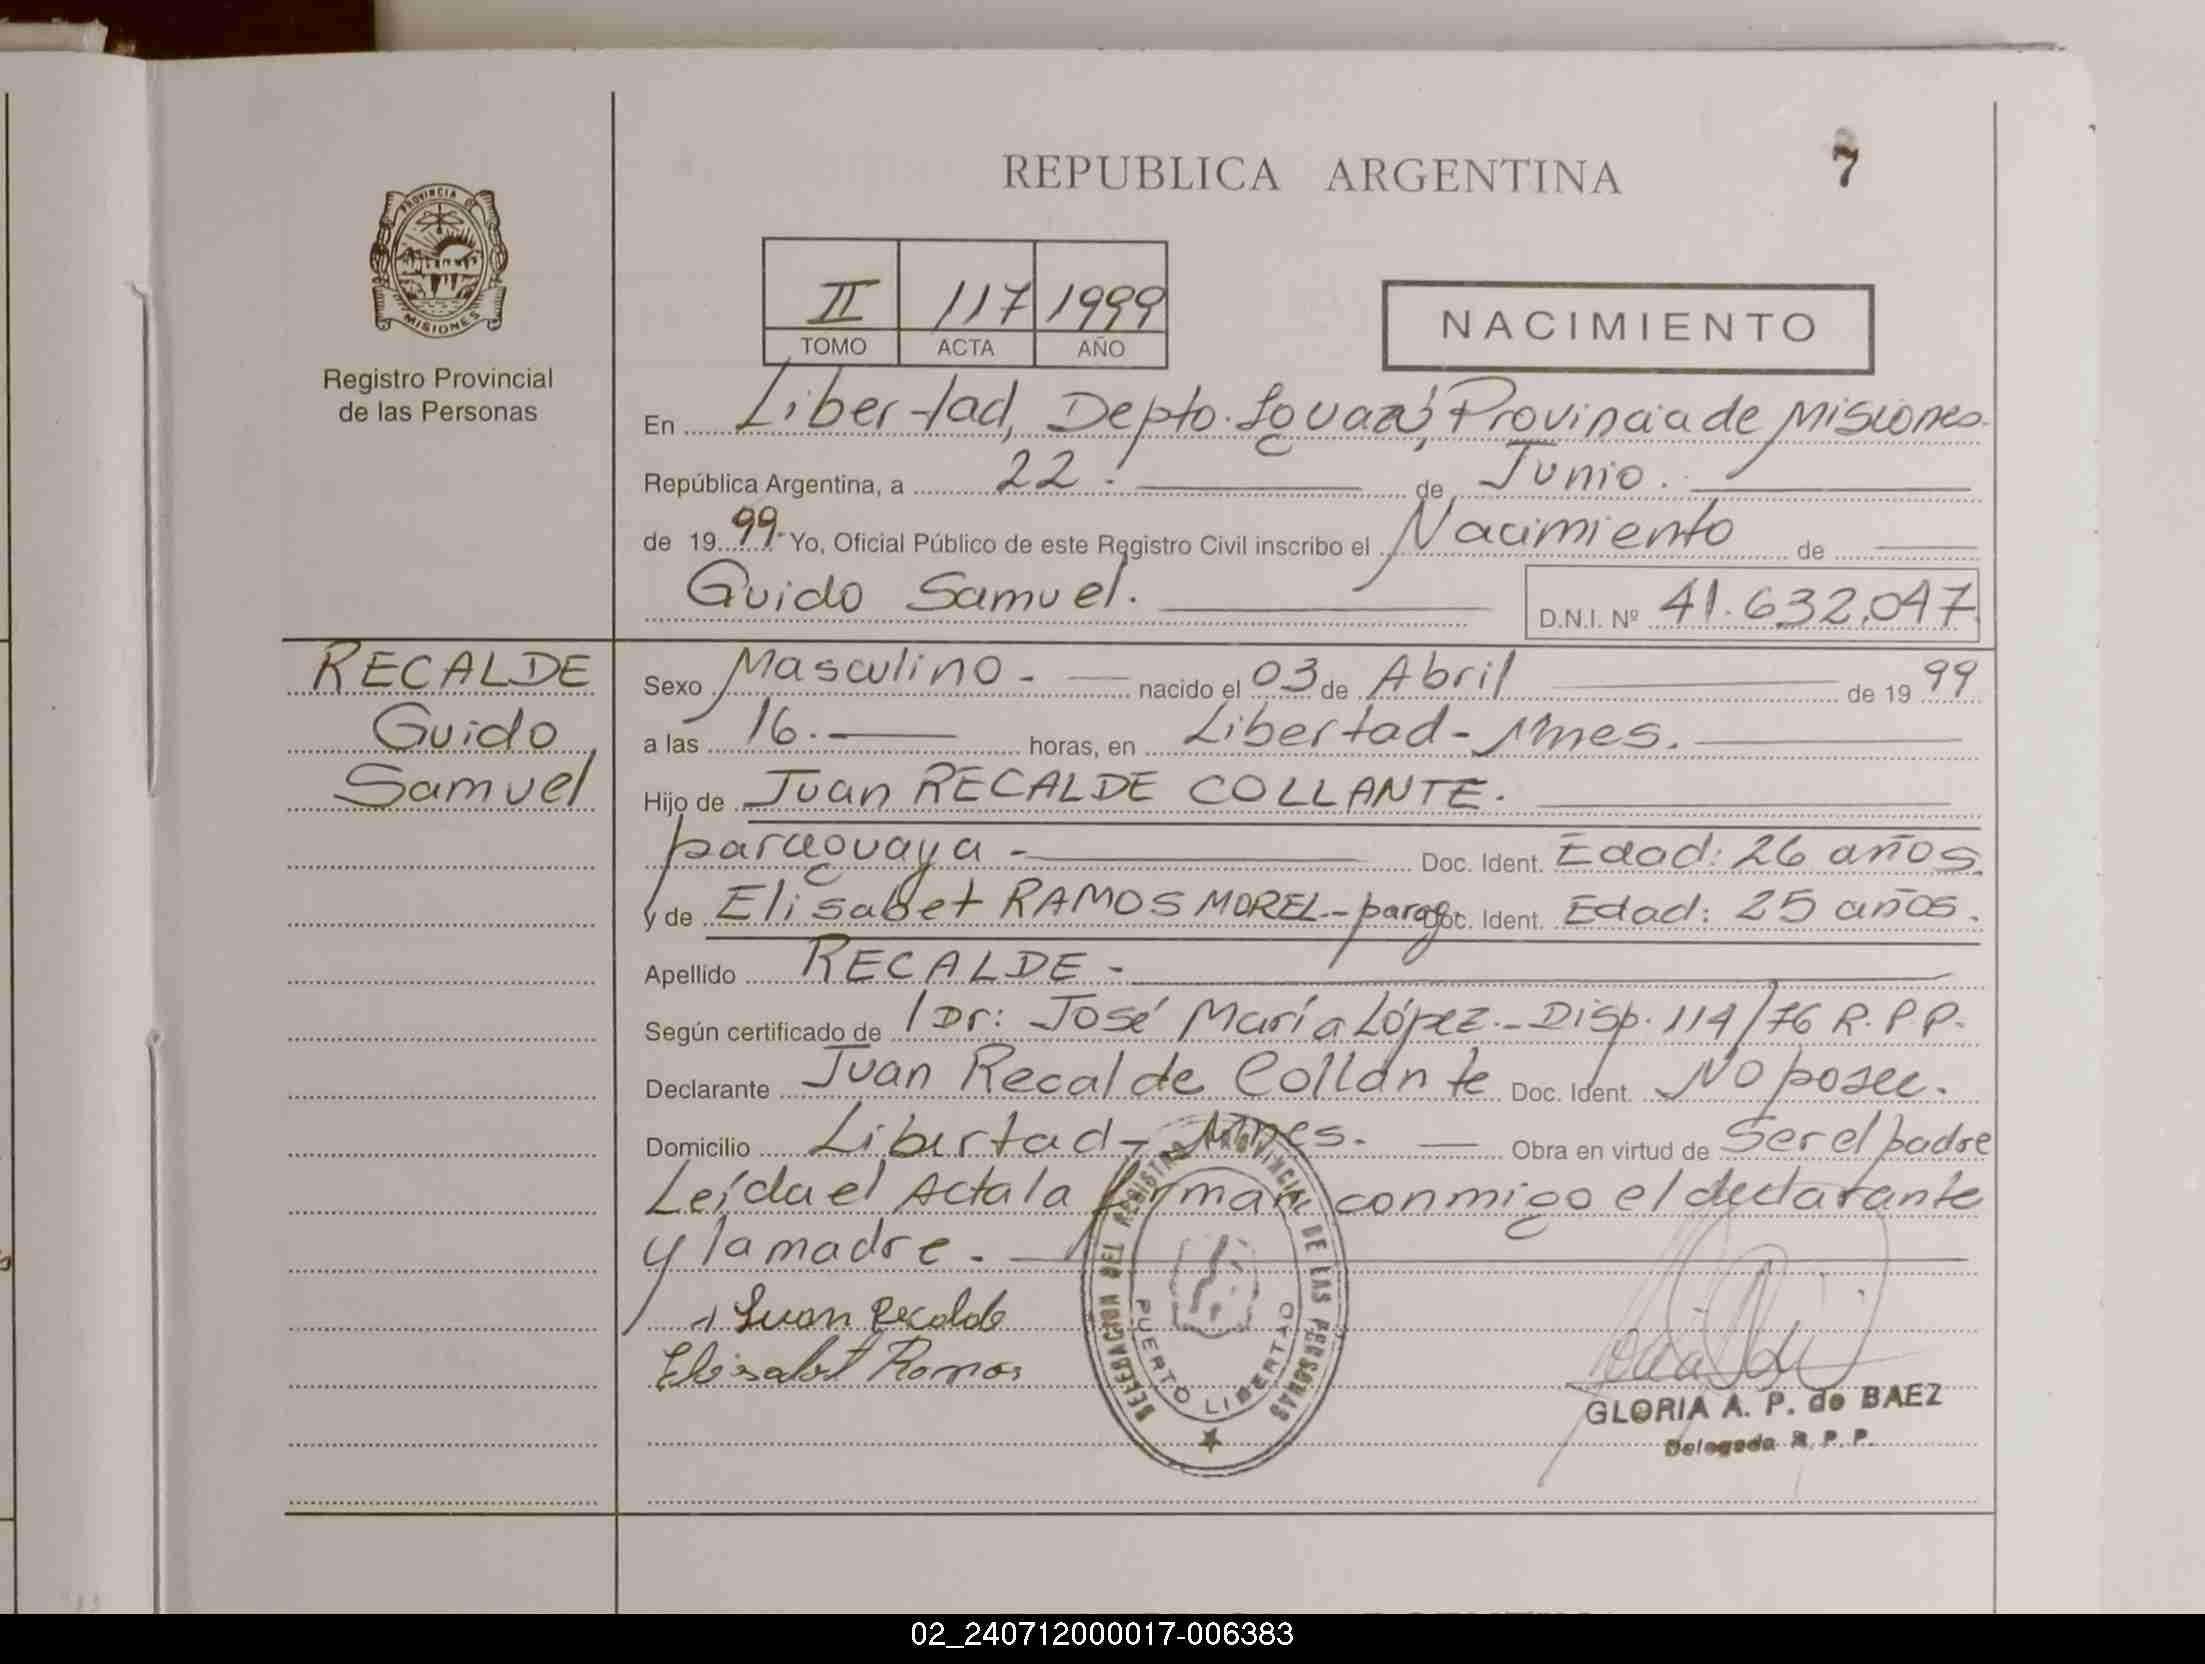 REPUBLICA ARGENTINA
7
PROVINCIA DE
MISIONES
Registro Provincial
de las Personas
II 117 1999
TOMO ACTA AÑO
NACIMIENTO
En Libertad, Depto. Iguazú, Provincia de Misiones.
República Argentina, a 22. de Junio.
de 19 99 Yo, Oficial Público de este Registro Civil inscribo el Nacimiento de
Guido Samuel. D.N.I. Nº 41.632.047
RECALDE
Guido
Samuel
Sexo Masculino - nacido el 03 de Abril de 19 99
a las 16. horas, en Libertad - Mnes.
Hijo de Juan RECALDE COLLANTE.
paraguaya - Doc. Ident. Edad: 26 años.
y de Elisabet RAMOS MOREL.- parag. Doc. Ident. Edad: 25 años.
Apellido RECALDE -
Según certificado de Dr: José María López.- Disp. 114/76 R.P.P.
Declarante Juan Recalde Collante Doc. Ident. No posee.
Domicilio Libertad - Mnes. Obra en virtud de Ser el padre
Leída el Acta la firman conmigo el declarante
y la madre.
Juan Recalde
Elisabet Ramos
DELEGACION DEL REGISTRO PROVINCIAL DE LAS PERSONAS
PUERTO LIBERTAD
GLORIA A. P. de BAEZ
Delegada R. P. P.
02_240712000017-006383